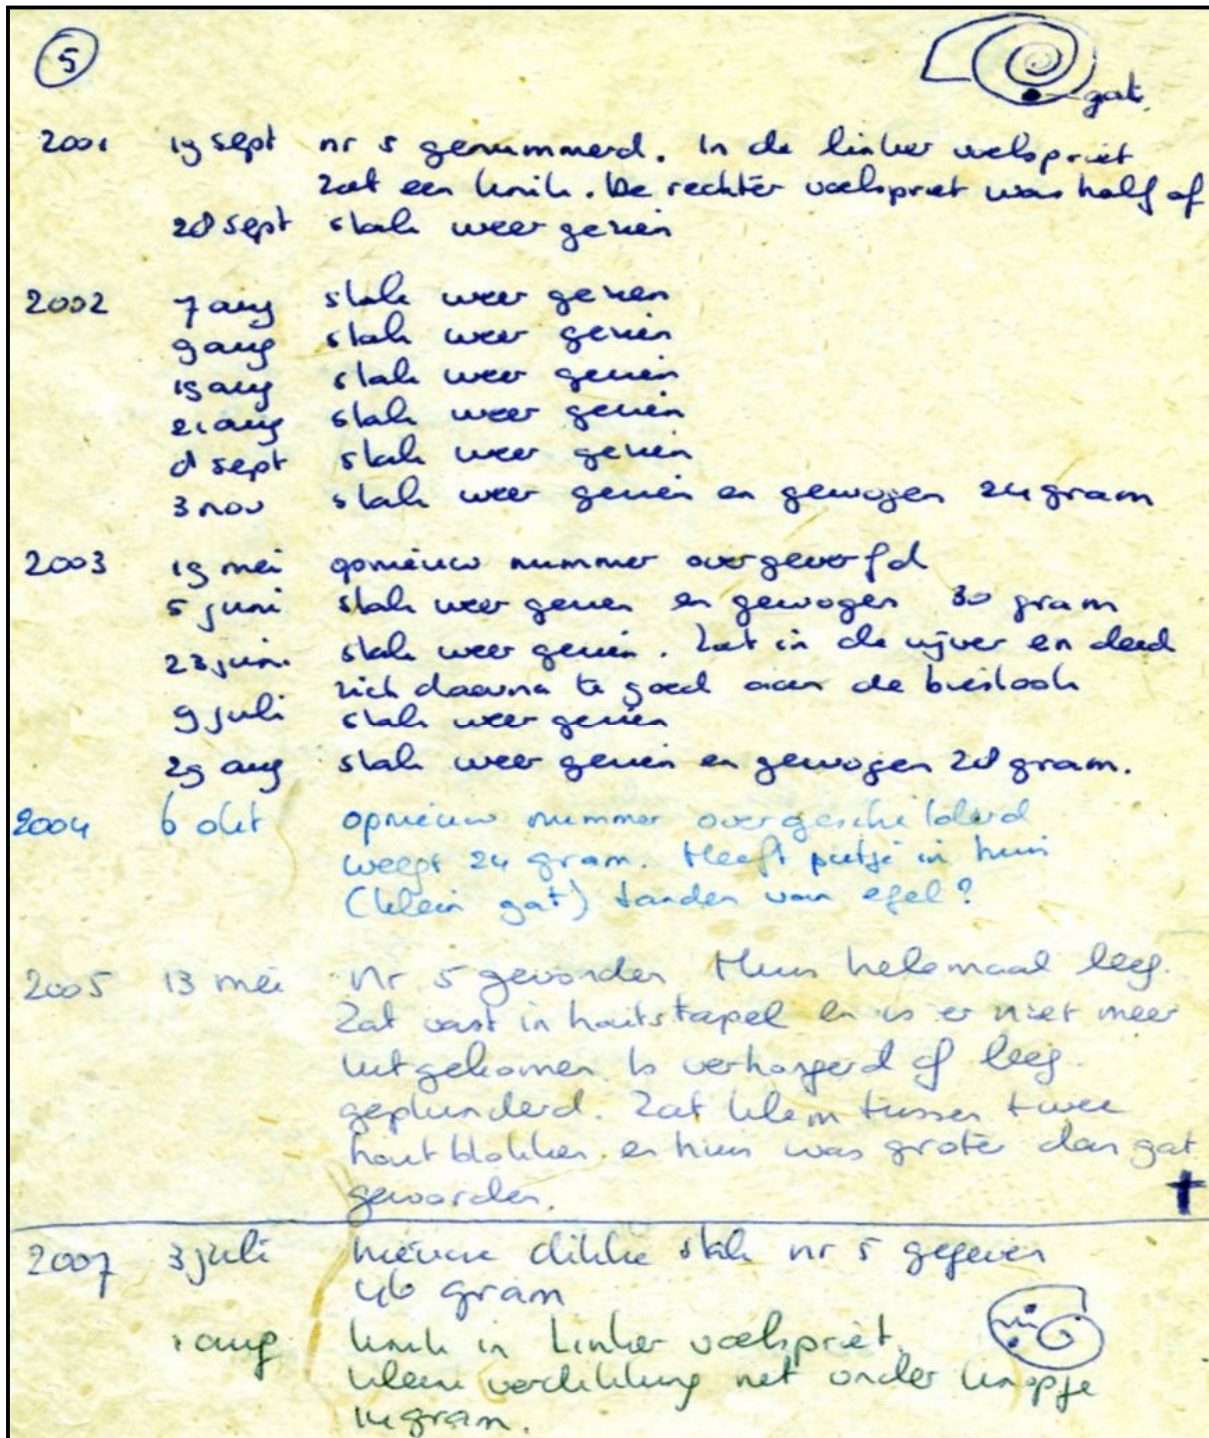 5
gat
2001 19 sept nr 5 genummerd. In de linker voelspriet
zat een knik. De rechter voelspriet was half af
28 sept slak weer gezien
2002 7 aug slak weer gezien
9 aug slak weer gezien
19 aug slak weer gezien
21 aug slak weer gezien
8 sept slak weer gezien
3 nov slak weer gezien en gewogen 24 gram
2003 19 mei opnieuw nummer overgeverfd
5 juni slak weer gezien en gewogen 30 gram
23 juni slak weer gezien. Zat in de vijver en deed
zich daarna te goed aan de bieslook
9 juli slak weer gezien
29 aug slak weer gezien en gewogen 28 gram.
2004 6 okt opnieuw nummer overgeschilderd
weegt 24 gram. Heeft putje in huis
(klein gat) tanden van egel?
2005 13 mei Nr 5 gevonden Huis helemaal leeg.
Zat vast in houtstapel en is er niet meer
uitgekomen. Is verhongerd of leeg-
geplunderd. Zat klem tussen twee
houtblokken en huis was groter dan gat
geworden. †
2007 3 juli nieuwe dikke slak nr 5 gegeven
46 gram
1 aug knik in linker voelspriet.
kleine verdikking net onder knopje
gram.